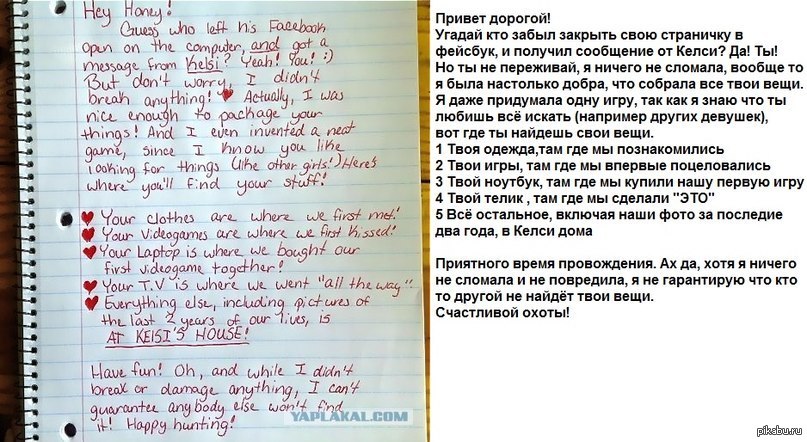 Hey Honey!
Guess who left his Facebook
open on the computer, and got a
message from Kelsi? Yeah! You! :)
But don't worry, I didn't
break anything! ♥ Actually, I was
nice enough to package your
things! And I even invented a neat
game, since I know you like
looking for things (like other girls!) Here's
where you'll find your stuff!
♥ Your clothes are where we first met!
♥ Your Videogames are where we first kissed!
♥ Your Laptop is where we bought our
first videogame together!
♥ Your T.V is where we went "all the way"
♥ Everything else, including pictures of
the last 2 years of our lives, is
AT KELSI'S HOUSE!
Have fun! Oh, and while I didn't
break or damage anything, I can't
guarantee anybody else won't find
it! Happy hunting!
YAPLAKAL.COM
Привет дорогой!
Угадай кто забыл закрыть свою страничку в
фейсбук, и получил сообщение от Келси? Да! Ты!
Но ты не переживай, я ничего не сломала, вообще то
я была настолько добра, что собрала все твои вещи.
Я даже придумала одну игру, так как я знаю что ты
любишь всё искать (например других девушек),
вот где ты найдешь свои вещи.
1 Твоя одежда,там где мы познакомились
2 Твои игры, там где мы впервые поцеловались
3 Твой ноутбук, там где мы купили нашу первую игру
4 Твой телик , там где мы сделали "ЭТО"
5 Всё остальное, включая наши фото за последие
два года, в Келси дома
Приятного время провождения. Ах да, хотя я ничего
не сломала и не повредила, я не гарантирую что кто
то другой не найдёт твои вещи.
Счастливой охоты!
pikabu.ru